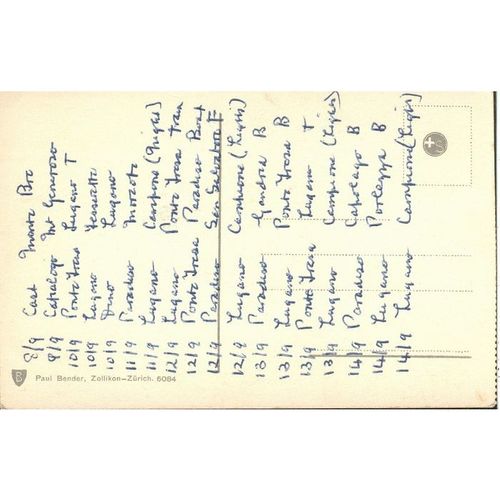 8/9 East Monte Bre
8/9 Capolago Mt Generoso
10/9 Ponte Tresa Lugano T
10/9 Lugano
10/9 Lugano
11/9 Paradiso Morcote
11/9 Lugano Campione (Night)
12/9 Lugano Ponte Tresa Tram
12/9 Ponte Tresa Paradiso Boat
12/9 Paradiso San Salvatore F
12/9 Lugano Campione (Light)
13/9 Paradiso Gandria B
13/9 Lugano Ponte Tresa B
13/9 Ponte Tresa Lugano T
13/9 Lugano Campione (Light)
14/9 Paradiso Capolago B
14/9 Lugano Porlezza B
14/9 Lugano Campione (Light)
B
Paul Bender, Zollikon-Zürich. 6084